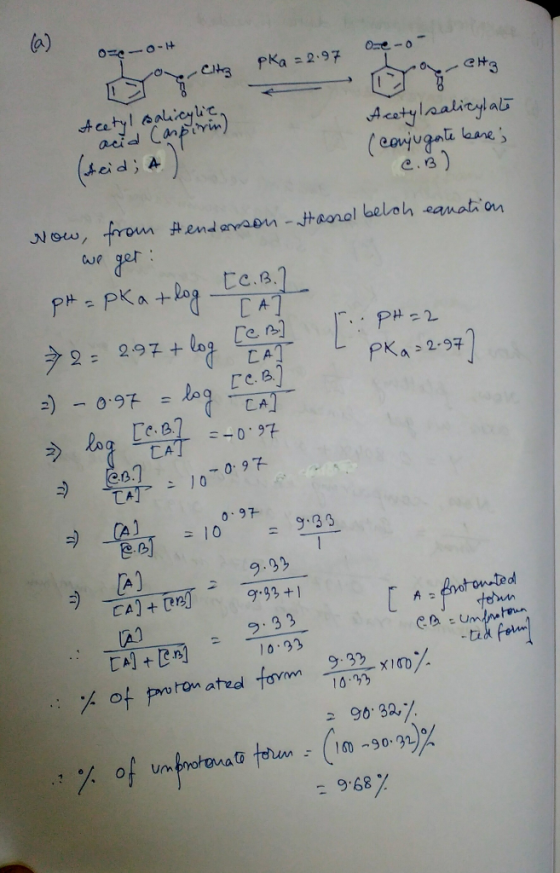 (a)
O=C-O-H
O C CH3
O
pKa = 2.97
O=C-O⁻
O C CH3
O
Acetyl salicylic
acid (aspirin)
(Acid; A)
Acetylsalicylate
(conjugate base;
C.B)
Now, from Henderson-Hasselbelch equation
we get:
pH = pKa + log [C.B.]/[A]
⇒ 2 = 2.97 + log [C.B]/[A] [∵ pH = 2
pKa = 2.97]
⇒ - 0.97 = log [C.B.]/[A]
⇒ log [C.B.]/[A] = -0.97
⇒ [C.B.]/[A] = 10^-0.97
⇒ [A]/[C.B] = 10^0.97 = 9.33/1
⇒ [A]/[A] + [CB] = 9.33/9.33+1 [A = protonated
form
C.B = unprotona
-ted form]
∴ [A]/[A] + [C.B] = 9.33/10.33
∴ % of protonated form 9.33/10.33 × 100%
= 90.32%.
∴ % of unprotonate form = (100 - 90.32)%
= 9.68%